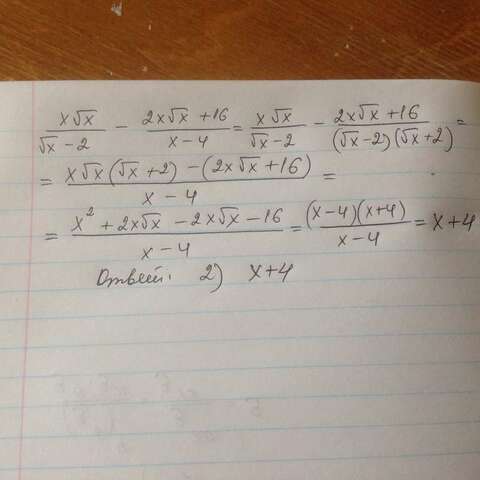 x√x/(√x - 2) - (2x√x + 16)/(x - 4) = x√x/(√x - 2) - (2x√x + 16)/((√x - 2)(√x + 2)) =
= (x√x(√x + 2) - (2x√x + 16))/(x - 4) =
= (x² + 2x√x - 2x√x - 16)/(x - 4) = ((x - 4)(x + 4))/(x - 4) = x + 4
Ответ: 2) x + 4